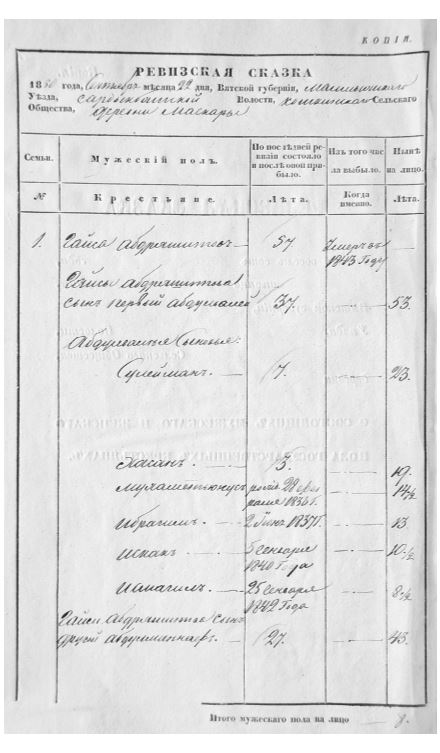 КОПІЯ.
РЕВИЗСКАЯ СКАЗКА
1850 года, Октября мѣсяца 22 дня, Вятской губерніи, Малмыжского
Уѣзда, Волости, Сельскаго
Общества, деревни Маскары
Семьи. Мужескій полъ. По послѣдней ревизіи состояло и послѣ оной прибыло. Изъ того числа выбыло. Нынѣ на лицо.
№ Крестьяне. Лѣта. Когда именно. Лѣта.
1. Гайса Абдрашитовъ 57. Умеръ въ 1843 Году —
Гайсы Абдрашитова
сынъ первый 37. — 53.
Сыновья
Сулейманъ. — 7. — 23.
Хасанъ. — 3. — 19.
Мухаметюнусъ 28 февраля 1836 г. — 14½
Ибрагимъ. — 2 1837 г. — 13.
Исхакъ — 5 Генваря 1840 Года — 10½
Исмагилъ. — 25 Генваря 1842 Года — 8½
Гайсы Абдрашитова сынъ
другой — 27. — 43.
Итого мужескаго пола на лицо — 8.